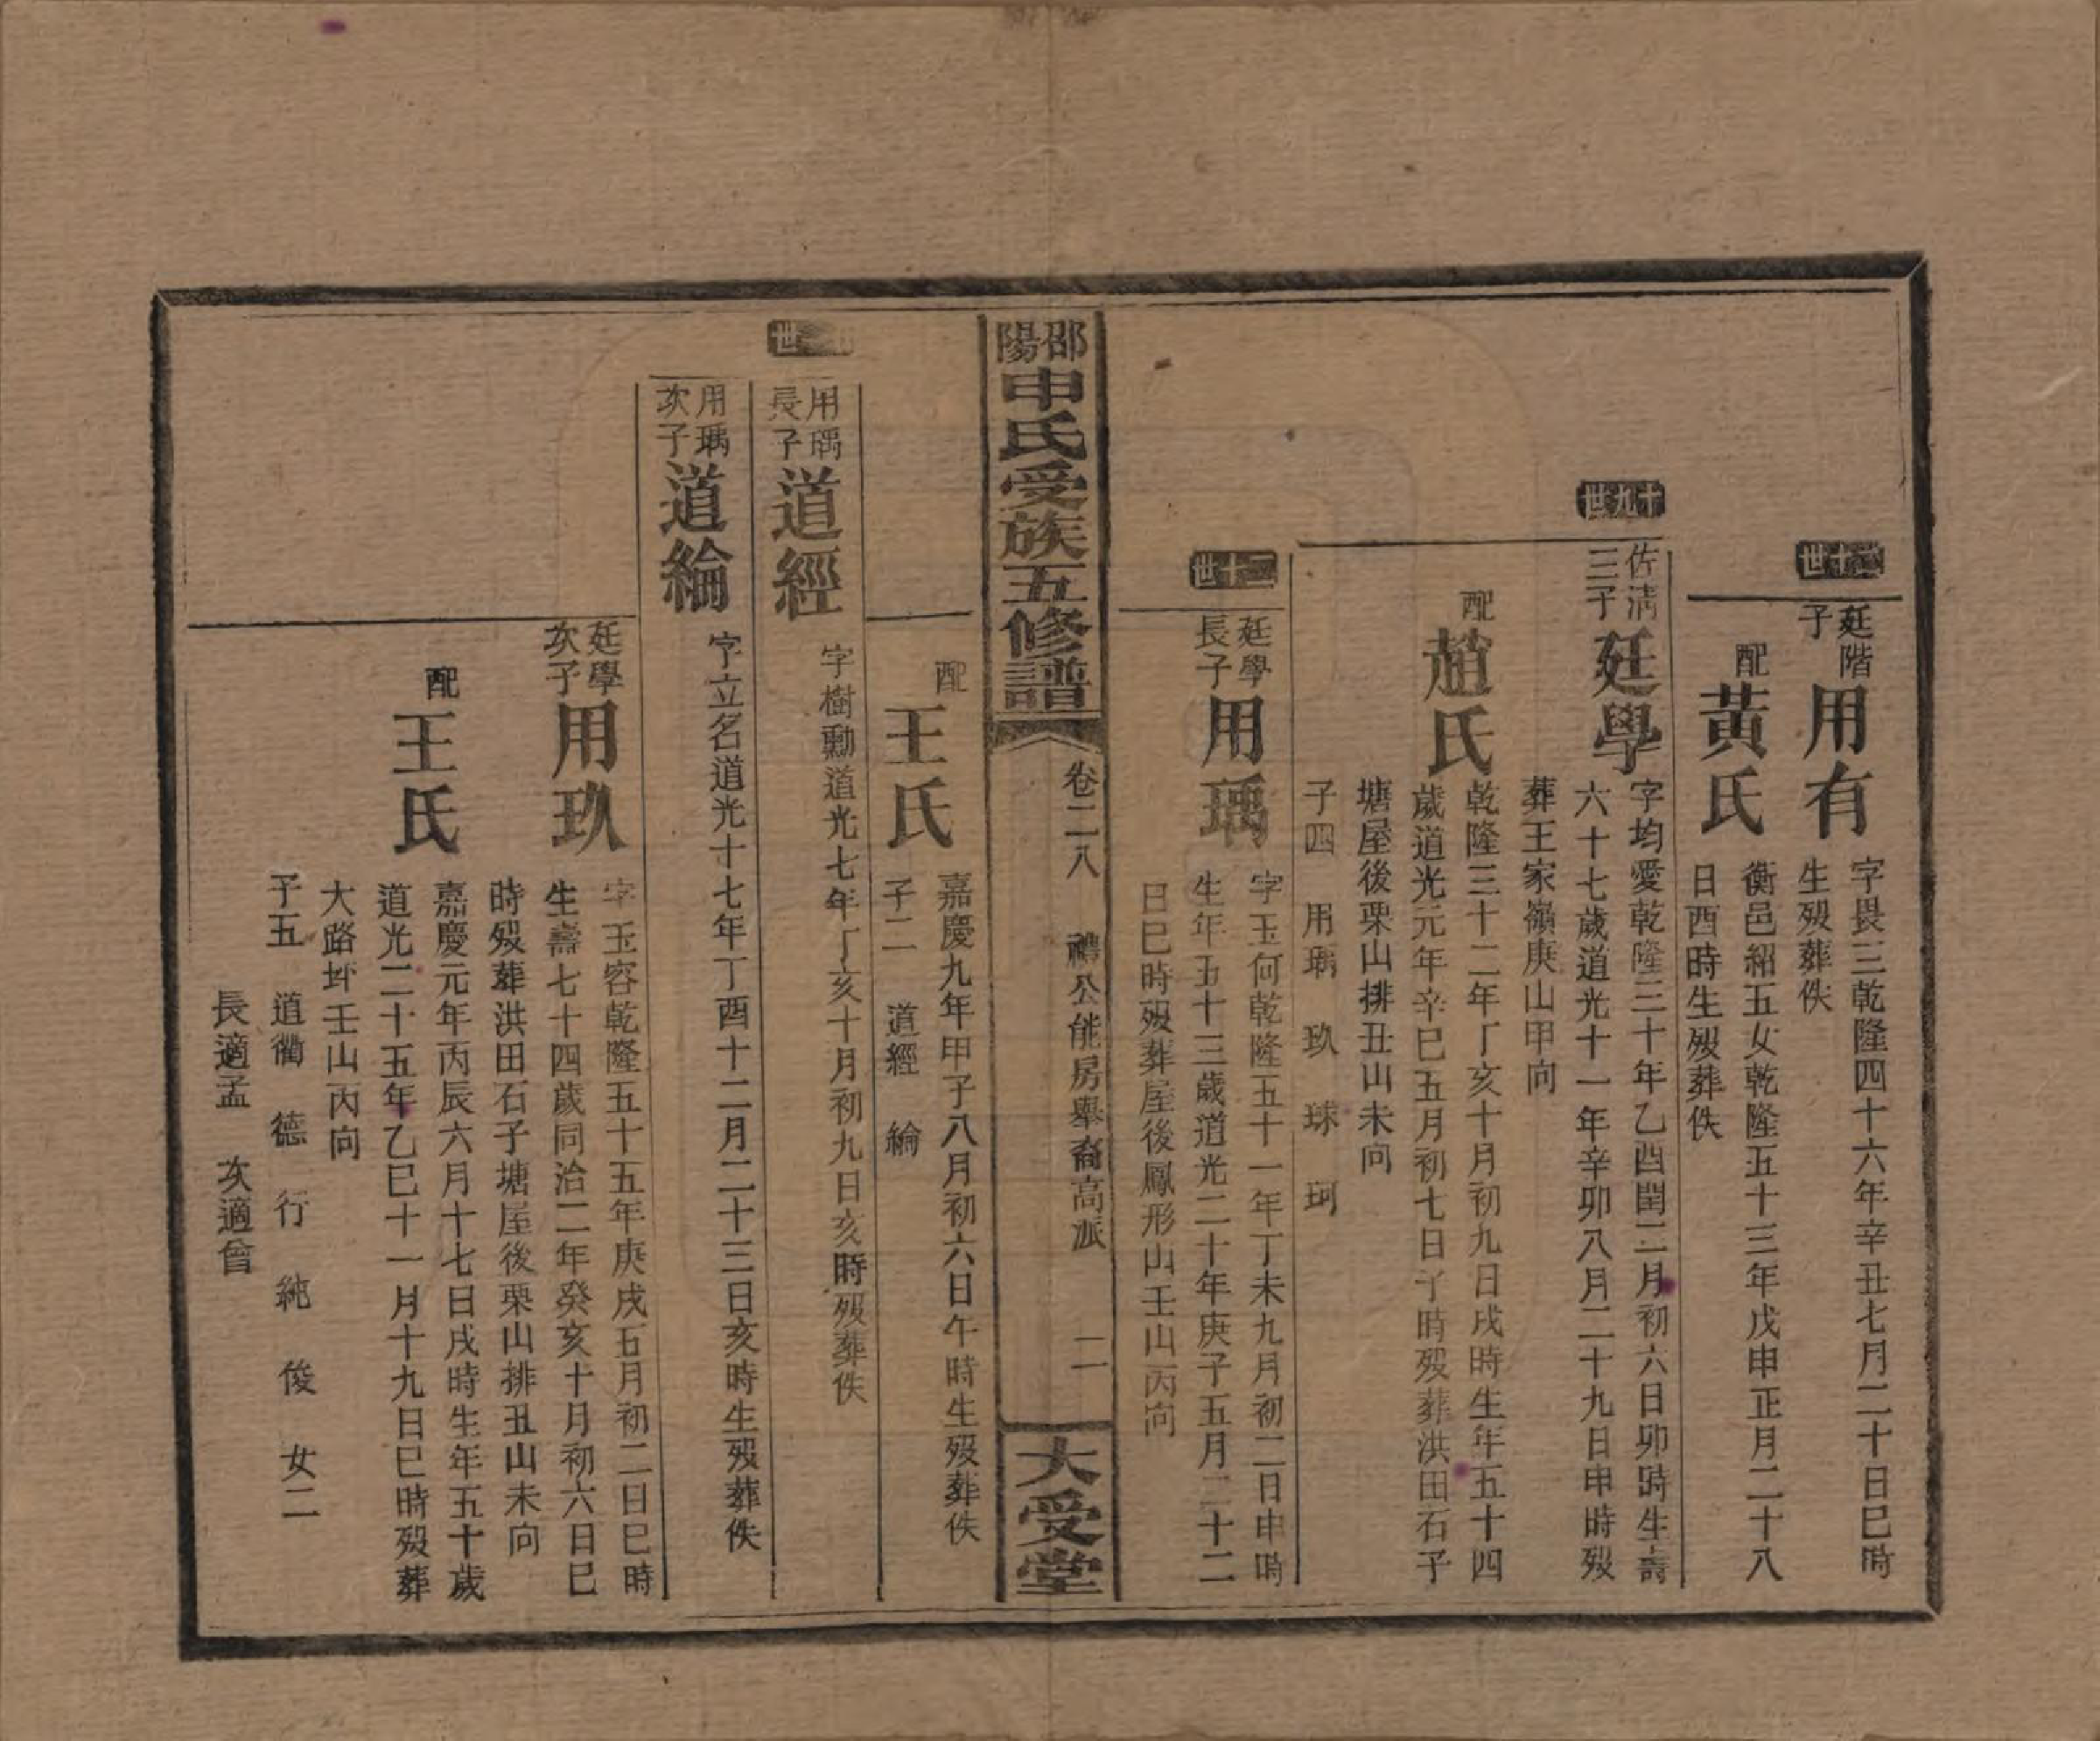 二十世
廷階
子
用有
字畏三乾隆四十六年辛丑七月二十日巳時
生歿葬佚
配
黃氏
衡邑紹五女乾隆五十三年戊申正月二十八
日酉時生歿葬佚
十九世
佐清
三子
廷學
字均愛乾隆三十年乙酉閏二月初六日卯時生壽
六十七歲道光十一年辛卯八月二十九日申時歿
葬王家嶺庚山甲向
配
趙氏
乾隆三十二年丁亥十月初九日戌時生年五十四
歲道光元年辛巳五月初七日子時歿葬洪田石子
塘屋後栗山排丑山未向
子四 用瑀 玖 球 珂
二十世
廷學
長子
用瑀
字玉何乾隆五十一年丁未九月初二日申時
生年五十三歲道光二十年庚子五月二十二
日巳時歿葬屋後鳳形山壬山丙向
邵陽申氏受族五修譜
卷二八 禮公能房舉裔高派 二
大受堂
配
王氏
嘉慶九年甲子八月初六日午時生歿葬佚
子二 道經 綸
世
用瑀
長子
道經
字樹勳道光七年丁亥十月初九日亥時歿葬佚
用瑀
次子
道綸
字立名道光十七年丁酉十二月二十三日亥時生歿葬佚
廷學
次子
用玖
字玉容乾隆五十五年庚戌五月初二日巳時
生壽七十四歲同治二年癸亥十月初六日巳
時歿葬洪田石子塘屋後栗山排丑山未向
配
王氏
嘉慶元年丙辰六月十七日戌時生年五十歲
道光二十五年乙巳十一月十九日巳時歿葬
大路坪壬山丙向
子五 道衢 德 行 純 俊 女二
長適孟 次適曾